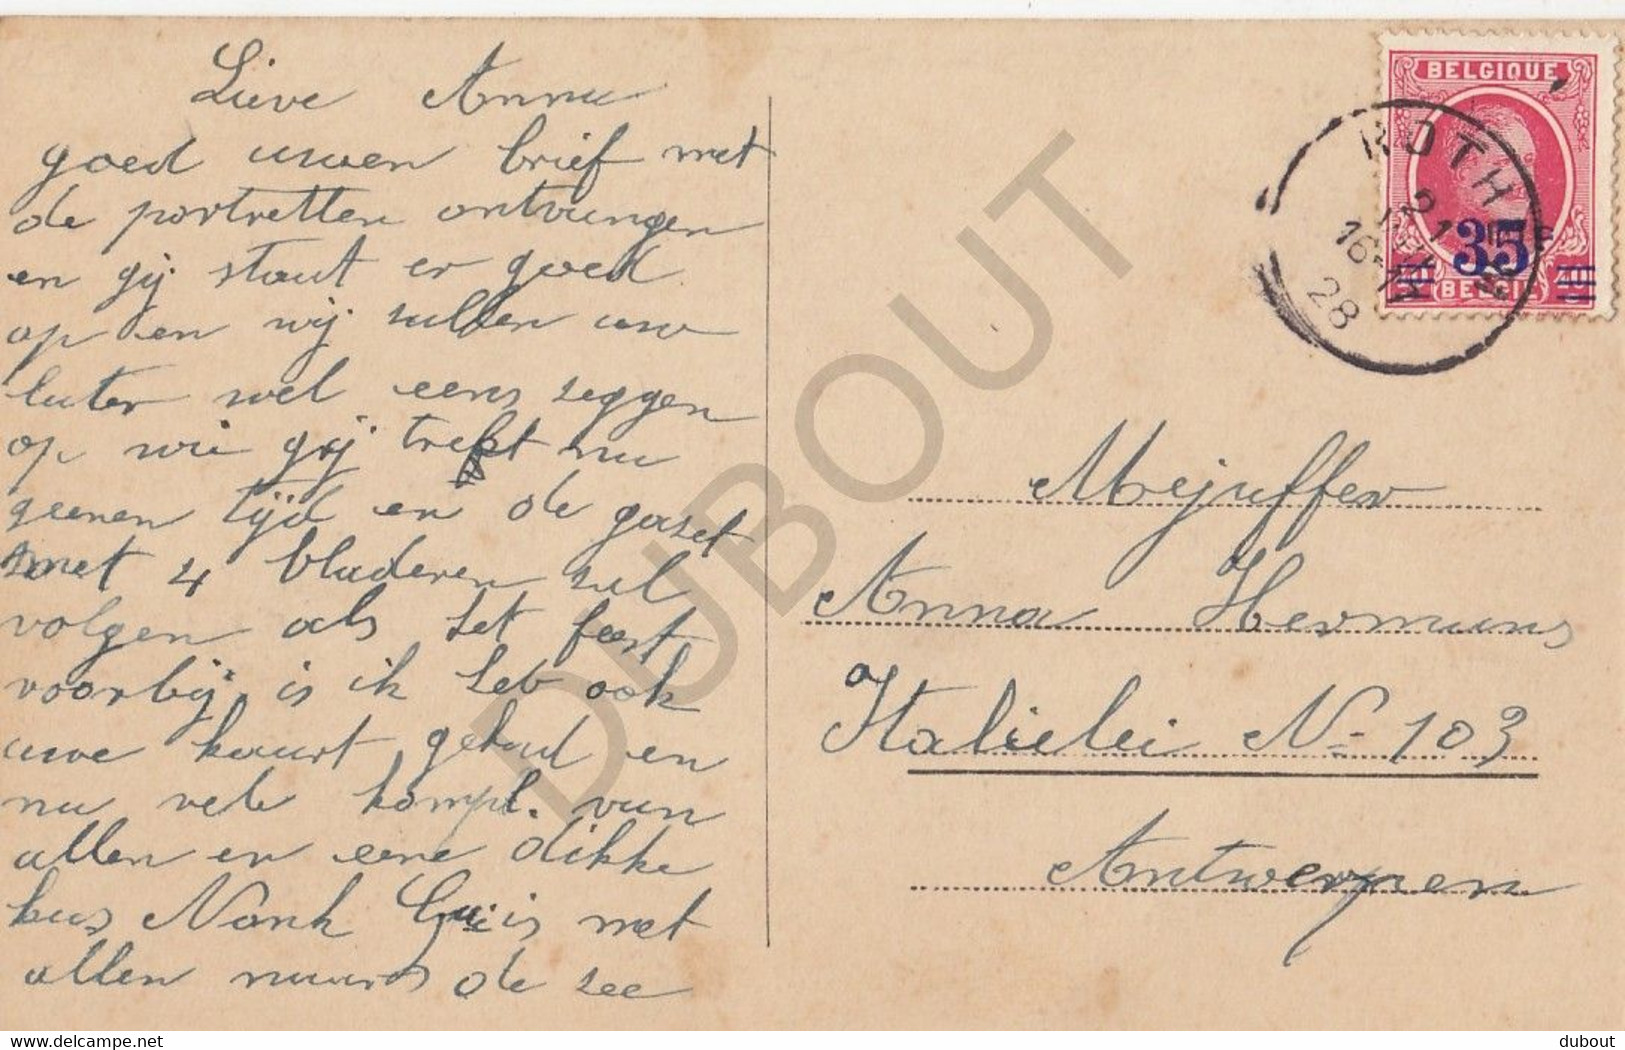 Lieve Anna
goed uwen brief met
de portretten ontvangen
en gij staat er goed
op en wij sullen uw
later wel eens seggen
op wie gij trekt nu
geenen tijd en de gaset
met 4 bladeren sul
volgen als het feest
voorbij is ik heb ook
uwe kaart gehad en
nu vele kompl. van
allen en eene dikke
kus Nonk met
allen naar de see
BELGIQUE
35
BELGIE
ROTH
21
16-17
28
Mejuffer
Anna Hermans
Italielei No 103
Antwerpen
DUBOUT
delcampe.net
dubout